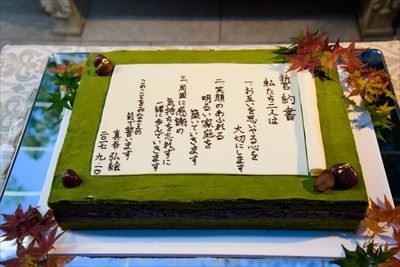 誓約書
私たち二人は
一、お互いを思いやる心を
大切にします
二、笑顔のあふれる
明るい家庭を
築いていきます
三、周囲に感謝の
気持ちを忘れずに
一緒に歩んでいきます
このことをみなさまの
前で誓います
真吾 弘絵
二〇一七、九、一〇